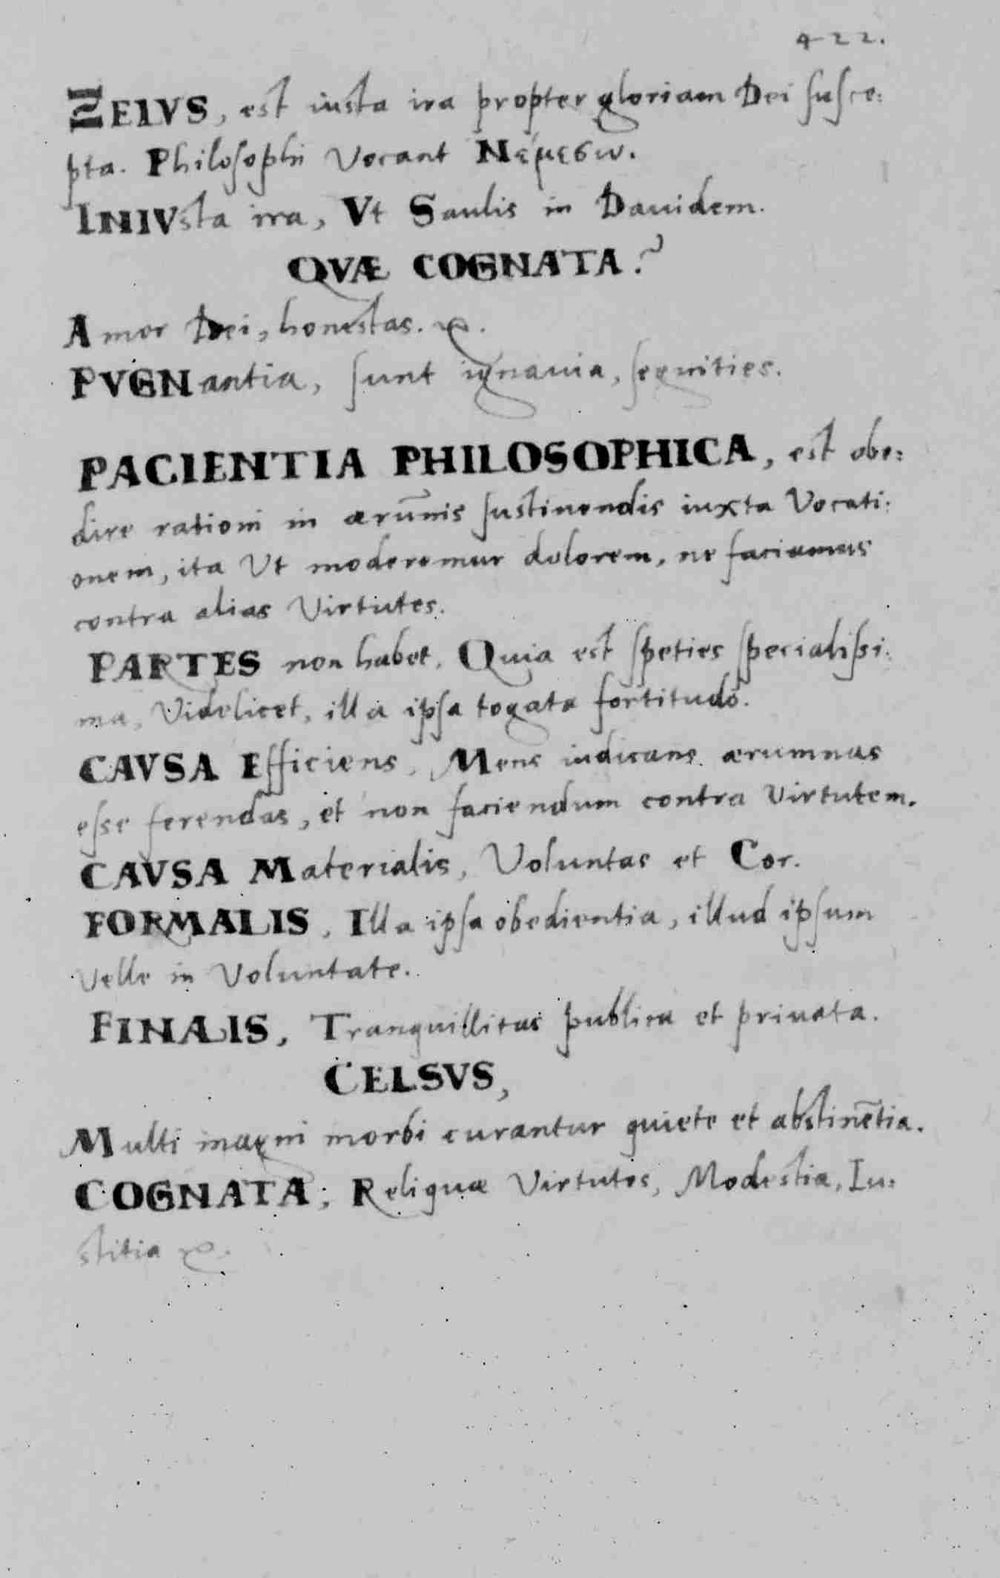 422.
ZELVS, est iusta ira propter gloriam Dei susce:
pta. Philosophi vocant Νέμεσιν.
INIVsta ira, Vt Saulis in Dauidem.
QVÆ COGNATA?
Amor Dei, honestas. &.
PVGNantia, sunt ignauia, segnities.
PACIENTIA PHILOSOPHICA, est obe:
dire rationi in ærum̄is sustinendis iuxta Vocati:
onem, ita Vt moderemur dolorem, ne faciamus
contra alias Virtutes.
PARTES non habet. Quia est speties specialissi:
ma, Videlicet, illa ipsa togata fortitudo.
CAVSA Efficiens, Mens iudicans ærumnas
esse ferendas, et non faciendum contra Virtutem.
CAVSA Materialis, Voluntas et Cor.
FORMALIS, Illa ipsa obedientia, illud ipsum
Velle in Voluntate.
FINALIS, Tranquillitas publica et priuata.
CELSVS,
Multi magni morbi curantur quiete et abstinētia.
COGNATA; Reliquæ Virtutes, Modestia, Iu:
stitia &.